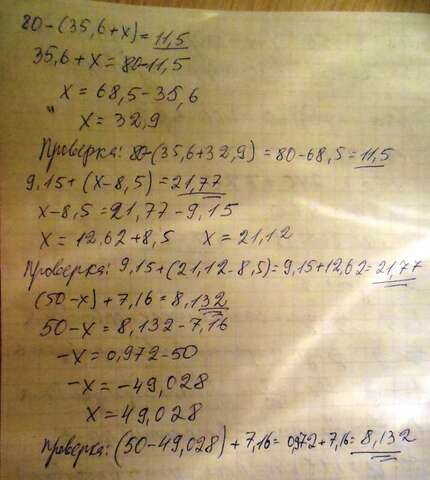 80-(35,6+x)=11,5
35,6+x=80-11,5
x=68,5-35,6
x=32,9
Проверка: 80-(35,6+32,9)=80-68,5=11,5
9,15+(x-8,5)=21,77
x-8,5=21,77-9,15
x=12,62+8,5 x=21,12
Проверка: 9,15+(21,12-8,5)=9,15+12,62=21,77
(50-x)+7,16=8,132
50-x=8,132-7,16
-x=0,972-50
-x=-49,028
x=49,028
Проверка: (50-49,028)+7,16=0,972+7,16=8,132